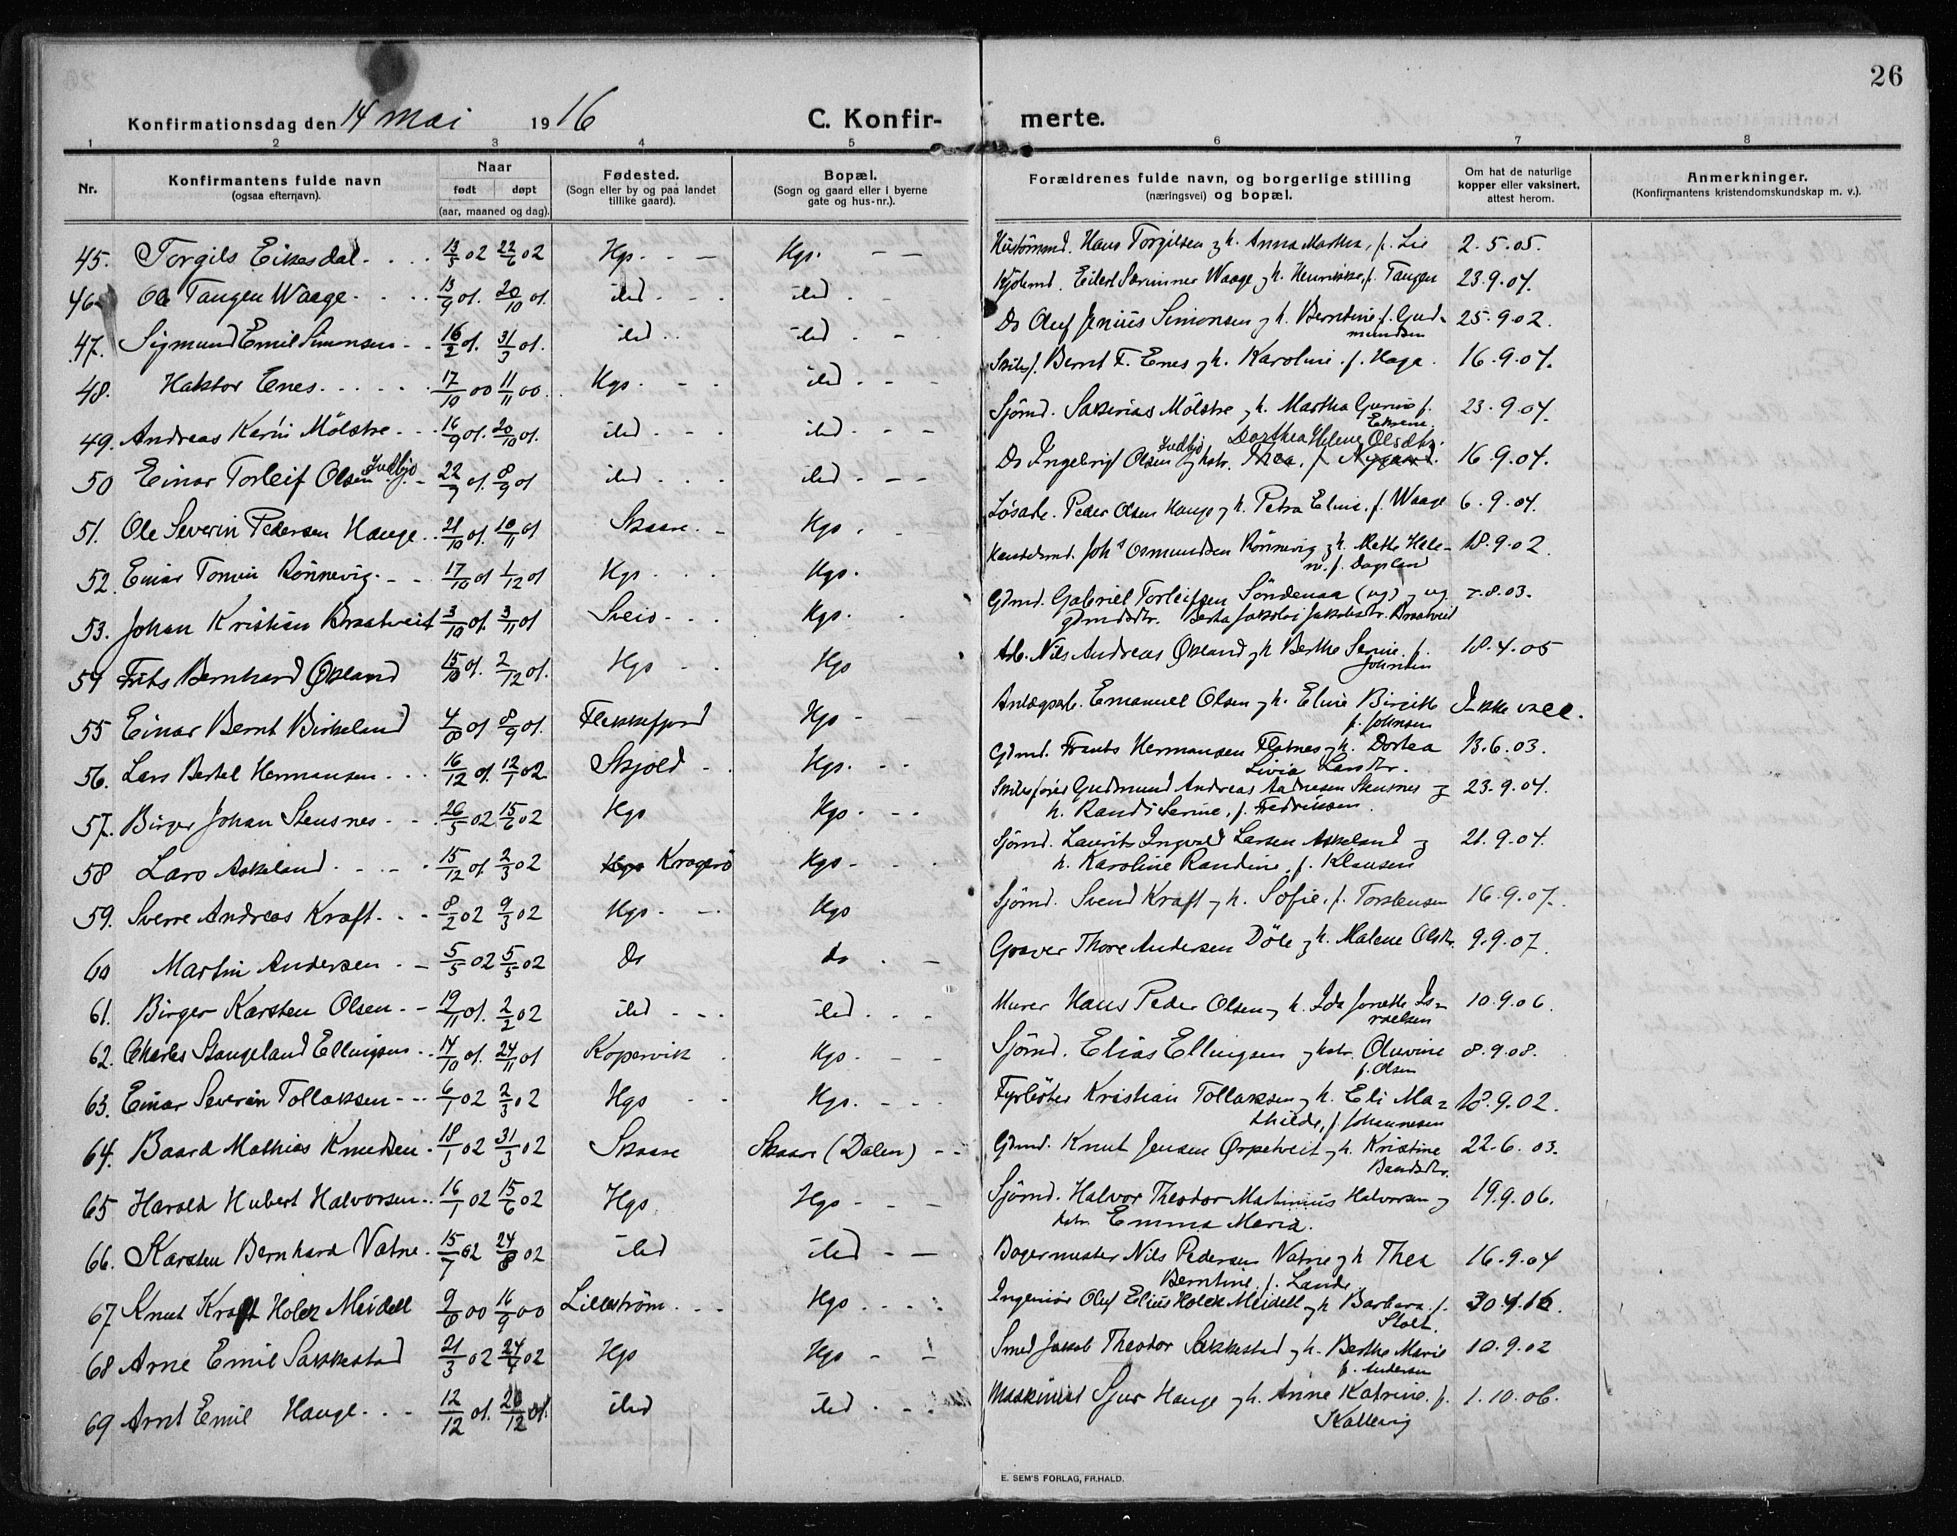 26
Konfirmationsdag den 14 mai 1916 C. Konfir- merte.
1 2 3 4 5 6 7 8
Nr. Konfirmantens fulde navn (ogsaa efternavn). Naar født døpt (aar, maaned og dag). Fødested. (Sogn eller by og paa landet tillike gaard). Bopæl. (Sogn og gaard eller i byerne gate og hus-nr.). Forældrenes fulde navn, og borgerlige stilling (næringsvei) og bopæl. Om hat de naturlige kopper eller vaksinert, attest herom. Anmerkninger. (Konfirmantens kristendomskundskap m. v.).
45. Torgils Eikesdal 13/5 02 22/6 02 Hgs. Hgs. Hans Torgilsen og h. Anna Martha, f. Lie 2.5.05.
46 Ole Tangen Waage 13/9 01. 20/10 01. ibid ibid Eilert Severinner Waage og h. Henrikke, f. Tangen 23.9.04.
47. Sigmund Emil Simonsen 16/2 01. 31/3 01. ibid ibid Do Oluf Jenius Simonsen og h. Berntine f. Gud-
mundsen 25.9.02.
48. Haktor Enes 17/10 00 11/11 00. Hgs ibid Skibsf. Bernt T. Enes og h. Karoline f. Haga. 16.9.04.
49. Andreas Karin Mölstre 16/9 01. 20/10 01. ibid ibid Sjømd. Sakarias Mölstre og h. Martha Gurine f. 23.9.04.
50 Einar Torleif Olsen Indbjo 22/7 01. 8/9 01 ibid ibid Do Ingebrigt Olsen Indbjo og hstr. Thea, f. Nygaard. Dorthea Helene Olsdtr. 16.9.04.
51. Ole Severin Pedersen Hauge 21/10 01. 10/11 01 Skaare Hgs. Løsarb. Peder Olsen Hauge og h. Petra Eline, f. Waage 6.9.04.
52. Einar Tomin Rönnevig 17/10 01 1/12 01 Hgs Hgs. Joh's Osmundsen Rönnevig og h. Mette Hele-
ne, f. Dagsland 18.9.02.
53. Johan Kristian Braatveit 3/10 01. 3/11 01 Sveio Hgs. Gbmd. Gabriel Torleifsen Söndenaa (ug) og ug
gbmdsdtr. Berta Jakobi Jakobsdtr. Braatveit 7.8.03.
54 Frits Bernhard Økland 15/10 01. 2/12 01. Hgs Hgs Arb. Nils Andreas Økland og h Berthe Serine f.
Johnsen 18.4.05
55 Einar Bernt Birkeland 4/8 01 8/9 01. Flekkefjord Hgs Anlægsarb. Emanuel Olsen og h. Eline Birgitte
f. Johnsen Ikke vacc.
56. Lars Bertel Hermansen 16/12 01. 12/1 02. Skjold Hgs. Gbmd. Frants Hermansen Flatnes og h. Dortea
Livia Larsdtr. 13.6.03.
57. Birger Johan Stensnes 26/5 02 15/6 02 Hgs Hgs. Skibsfører Gudmund Andreas Aadnesen Stensnes og
h. Randi Serine, f. Fredriksen. 23.9.04.
58 Lars Askeland 15/12 01. 2/3 02 Hgs Kragerö Hgs Sjømd. Laurits Ingvald Larsen Askeland og
h. Karoline Randine, f. Klausen 21.9.04.
59. Sverre Andreas Kraft 8/2 02 9/3 02 Hgs. Hgs Sjømd. Svend Kraft og h. Sofie, f. Torstensen 16.9.07.
60 Martin Andersen 5/5 02 5/5 02 Do do Graver Thore Andersen Döle og h. Malene Olsdtr. 9.9.07.
61. Birger Karsten Olsen 19/11 01. 2/2 02 ibid ibid. Murer Hans Peder Olsen og h. Ida Jonette Is-
raelsen 10.9.06.
62. Charles Stangeland Ellingsen 14/10 01. 24/11 01 Kopervik Hgs. Sjømd. Elias Ellingsen og hstr. Oluvine
f. Olsen 8.9.08.
63. Einar Severin Tollaksen 6/1 02 2/3 02 Hgs Hgs. Fyrbøter Kristian Tollaksen og h. Eli Ma-
thilde, f. Johannesen 18.9.02.
64. Baard Mathias Knudsen 18/1 02 31/3 02 Skaare Skaare (Dalen) Gbmd. Knut Jensen Ørpetveit og h. Kristine
Baardsdtr. 22.6.03.
65 Harald Hubert Halvorsen 16/1 02 15/6 02 Hgs Hgs Sjømd. Halvor Theodor Matinius Halvorsen og
hstr. Emma Maria. 19.9.06.
66. Karsten Bernhard Vatne 15/7 02 24/8 02 ibid ibid Bagermester Nils Pedersen Vatne og h Thea
Berntine, f. Lande 16.9.04
67 Knut Kraft Holck Meidell 9/6 00 16/9 00 Lillestrøm Hgs Ingeniør Oluf Elius Holck Meidell og h Barbara f.
Stolt. 30.4.16.
68 Arne Emil Sakkestad 21/3 02 24/4 02 Hgs Hgs Smed Jakob Theodor Sakkestad og h. Berthe Marie
f. Andersen 10.9.02
69 Arnt Emil Hauge 12/12 01. 26/12 01. ibid ibid Maskinist Sjur Hauge og h. Anne Katrine f.
Kallevig 1.10.06.
E. SEM'S FORLAG, FR.HALD.